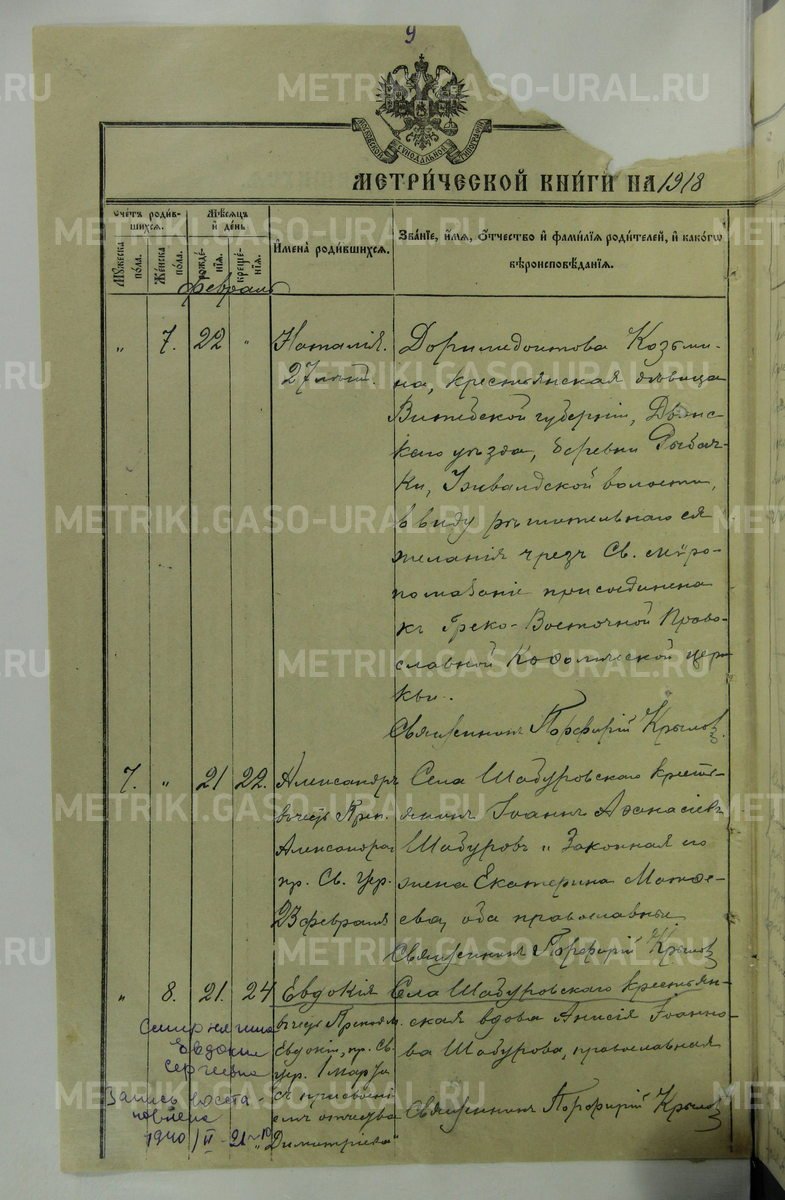 9
МОСКОВСКОЙ СѴНОДАЛЬНОЙ ТИПОГРАФІИ
МЕТРИ́ЧЕСКОЙ КНИ́ГИ НА 1918
Счетъ роди́вшихся.
Мꙋжеска по́ла.
Же́нска по́ла.
Мѣ́сяцъ и҆ де́нь
рожде́нїя.
креще́нїя.
И҆мена̀ роди́вшихся.
Зва́нїе, и҆́мѧ, ѻ҆́тчество и҆ фами́лїѧ роди́телей, и҆ како́гѡ
вѣроисповѣ́данїѧ.
февраль
„ 7. 22 „
Наталія.
27 лѣтъ.
Доримедонтова Козьми-
на, крестьянская дѣвица
Витебской губерніи, Двинс-
каго уѣзда, деревни Рыбач-
ки, волости,
въ виду рѣшительнаго ея
желанія чрезъ Св. мѵро-
помазаніе присоединена
къ Греко-Восточной Право-
славной Каѳолической цер-
кви.
Священникъ Порфирій Крыловъ
7. „ 21 22.
Александръ
въ честь Прп.
Александра
пр. Св. Цер.
23 февраля
Села Шабуровскаго кресть-
янинъ Іоаннъ Аѳанасіевъ
Шабуровъ „ Законная его
жена Екатерина Матѳе-
ева, оба православные
Священникъ Порфирій Крыловъ
„ 8. 21. 24
Евдокія
въ честь Препод. м.
Евдокіи, пр. Св.
Цер. 1 марта
съ присвоені
емъ отчества
„Димитріева“
Села Шабуровскаго крестьян-
ская вдова Анисія Іоанно-
ва Шабурова, православная
Священникъ Порфирій Крыловъ
Евдокия
Сергеевна
Запись восста-
новлена
1940
METRIKI.GASO-URAL.RU